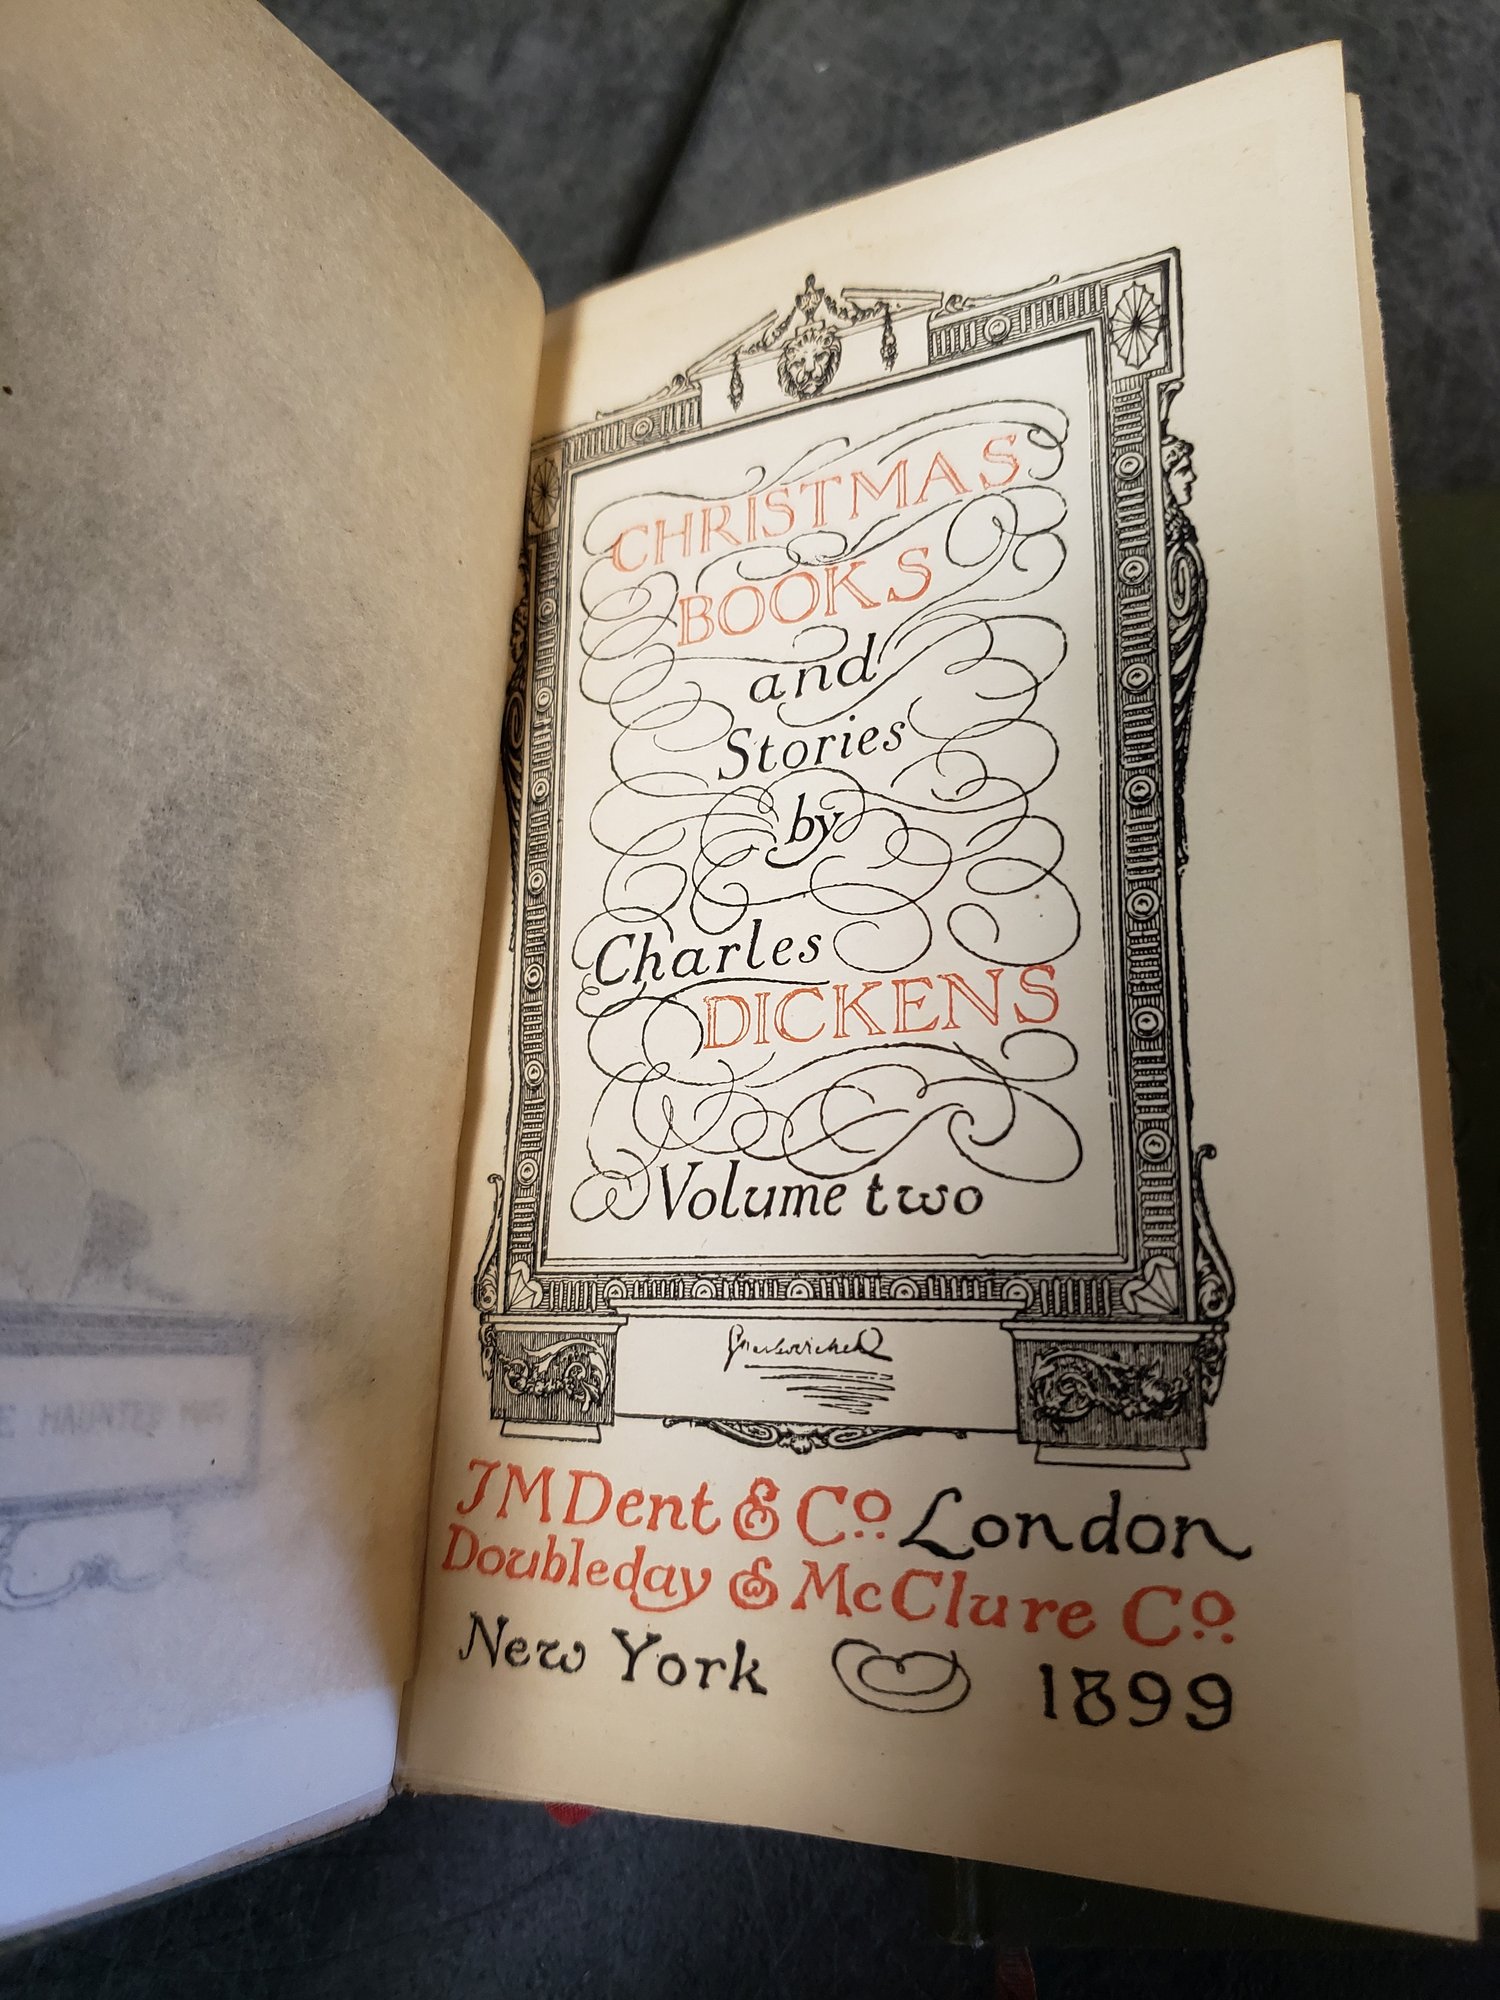 E HAUNTED MAN
CHRISTMAS
BOOKS
and
Stories
by
Charles
DICKENS
Volume two
JM Dent & Co. London
Doubleday & McClure Co.
New York 1899